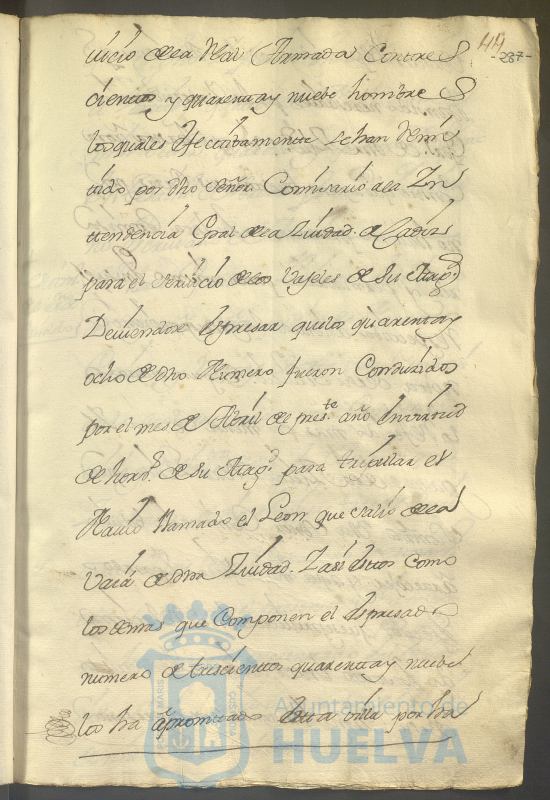 44
-287-
uicio de la Real Armada Contres
cientos y quarenta y nuebe hombres
los quales efectibamente se han Remi
tido por dho Señor Comisario a la In
tendencia Gral de la Ziudad de Cadiz
para el seruicio de los Vajeles de Su Mag.d
Deuiendose espresar que los quarenta y
ocho de dho Numero fueron Conduzidos
por el mes de Abril de pres.te año En virtud
de horn. de Su Mag.d para tripular el
Nauio llamado el Leon que salio de la
Vaia de dha Ziudad. Y asi estos como
los demas que Componen el espresado
numero de trescientos quarenta y nuebe
los ha aprontado esta villa por ha
Ayuntamiento de
HUELVA